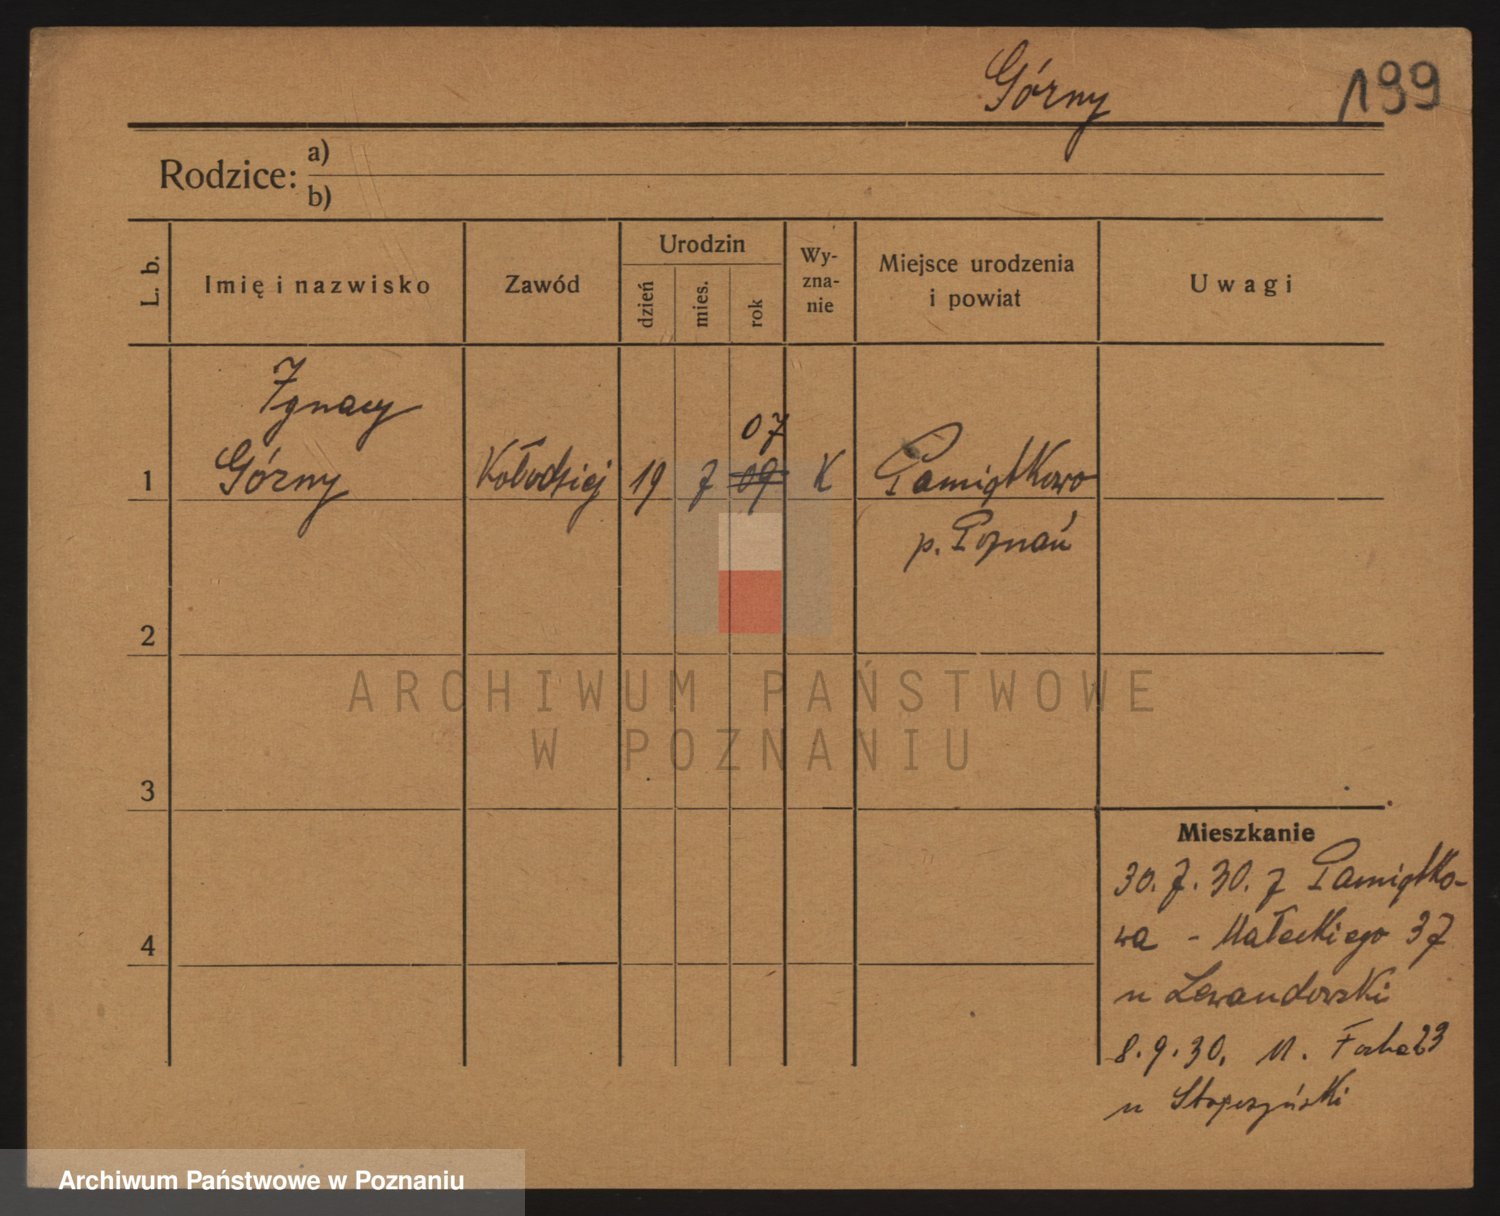 Górny
199
Rodzice: a)
b)
L. b.
Imię i nazwisko
Zawód
Urodzin
dzień
mies.
rok
Wy-
zna-
nie
Miejsce urodzenia
i powiat
Uwagi
Ignacy
07
1 Górny Kołodziej 19 7 09 K Pamiątkowo
p. Poznań
2
ARCHIWUM PAŃSTWOWE
W POZNANIU
3
Mieszkanie
30. 7. 30. z Pamiątko-
4
wa - Małeckiego 37
u Lewandowski
8. 9. 30. M. Focha 23
u
Archiwum Państwowe w Poznaniu